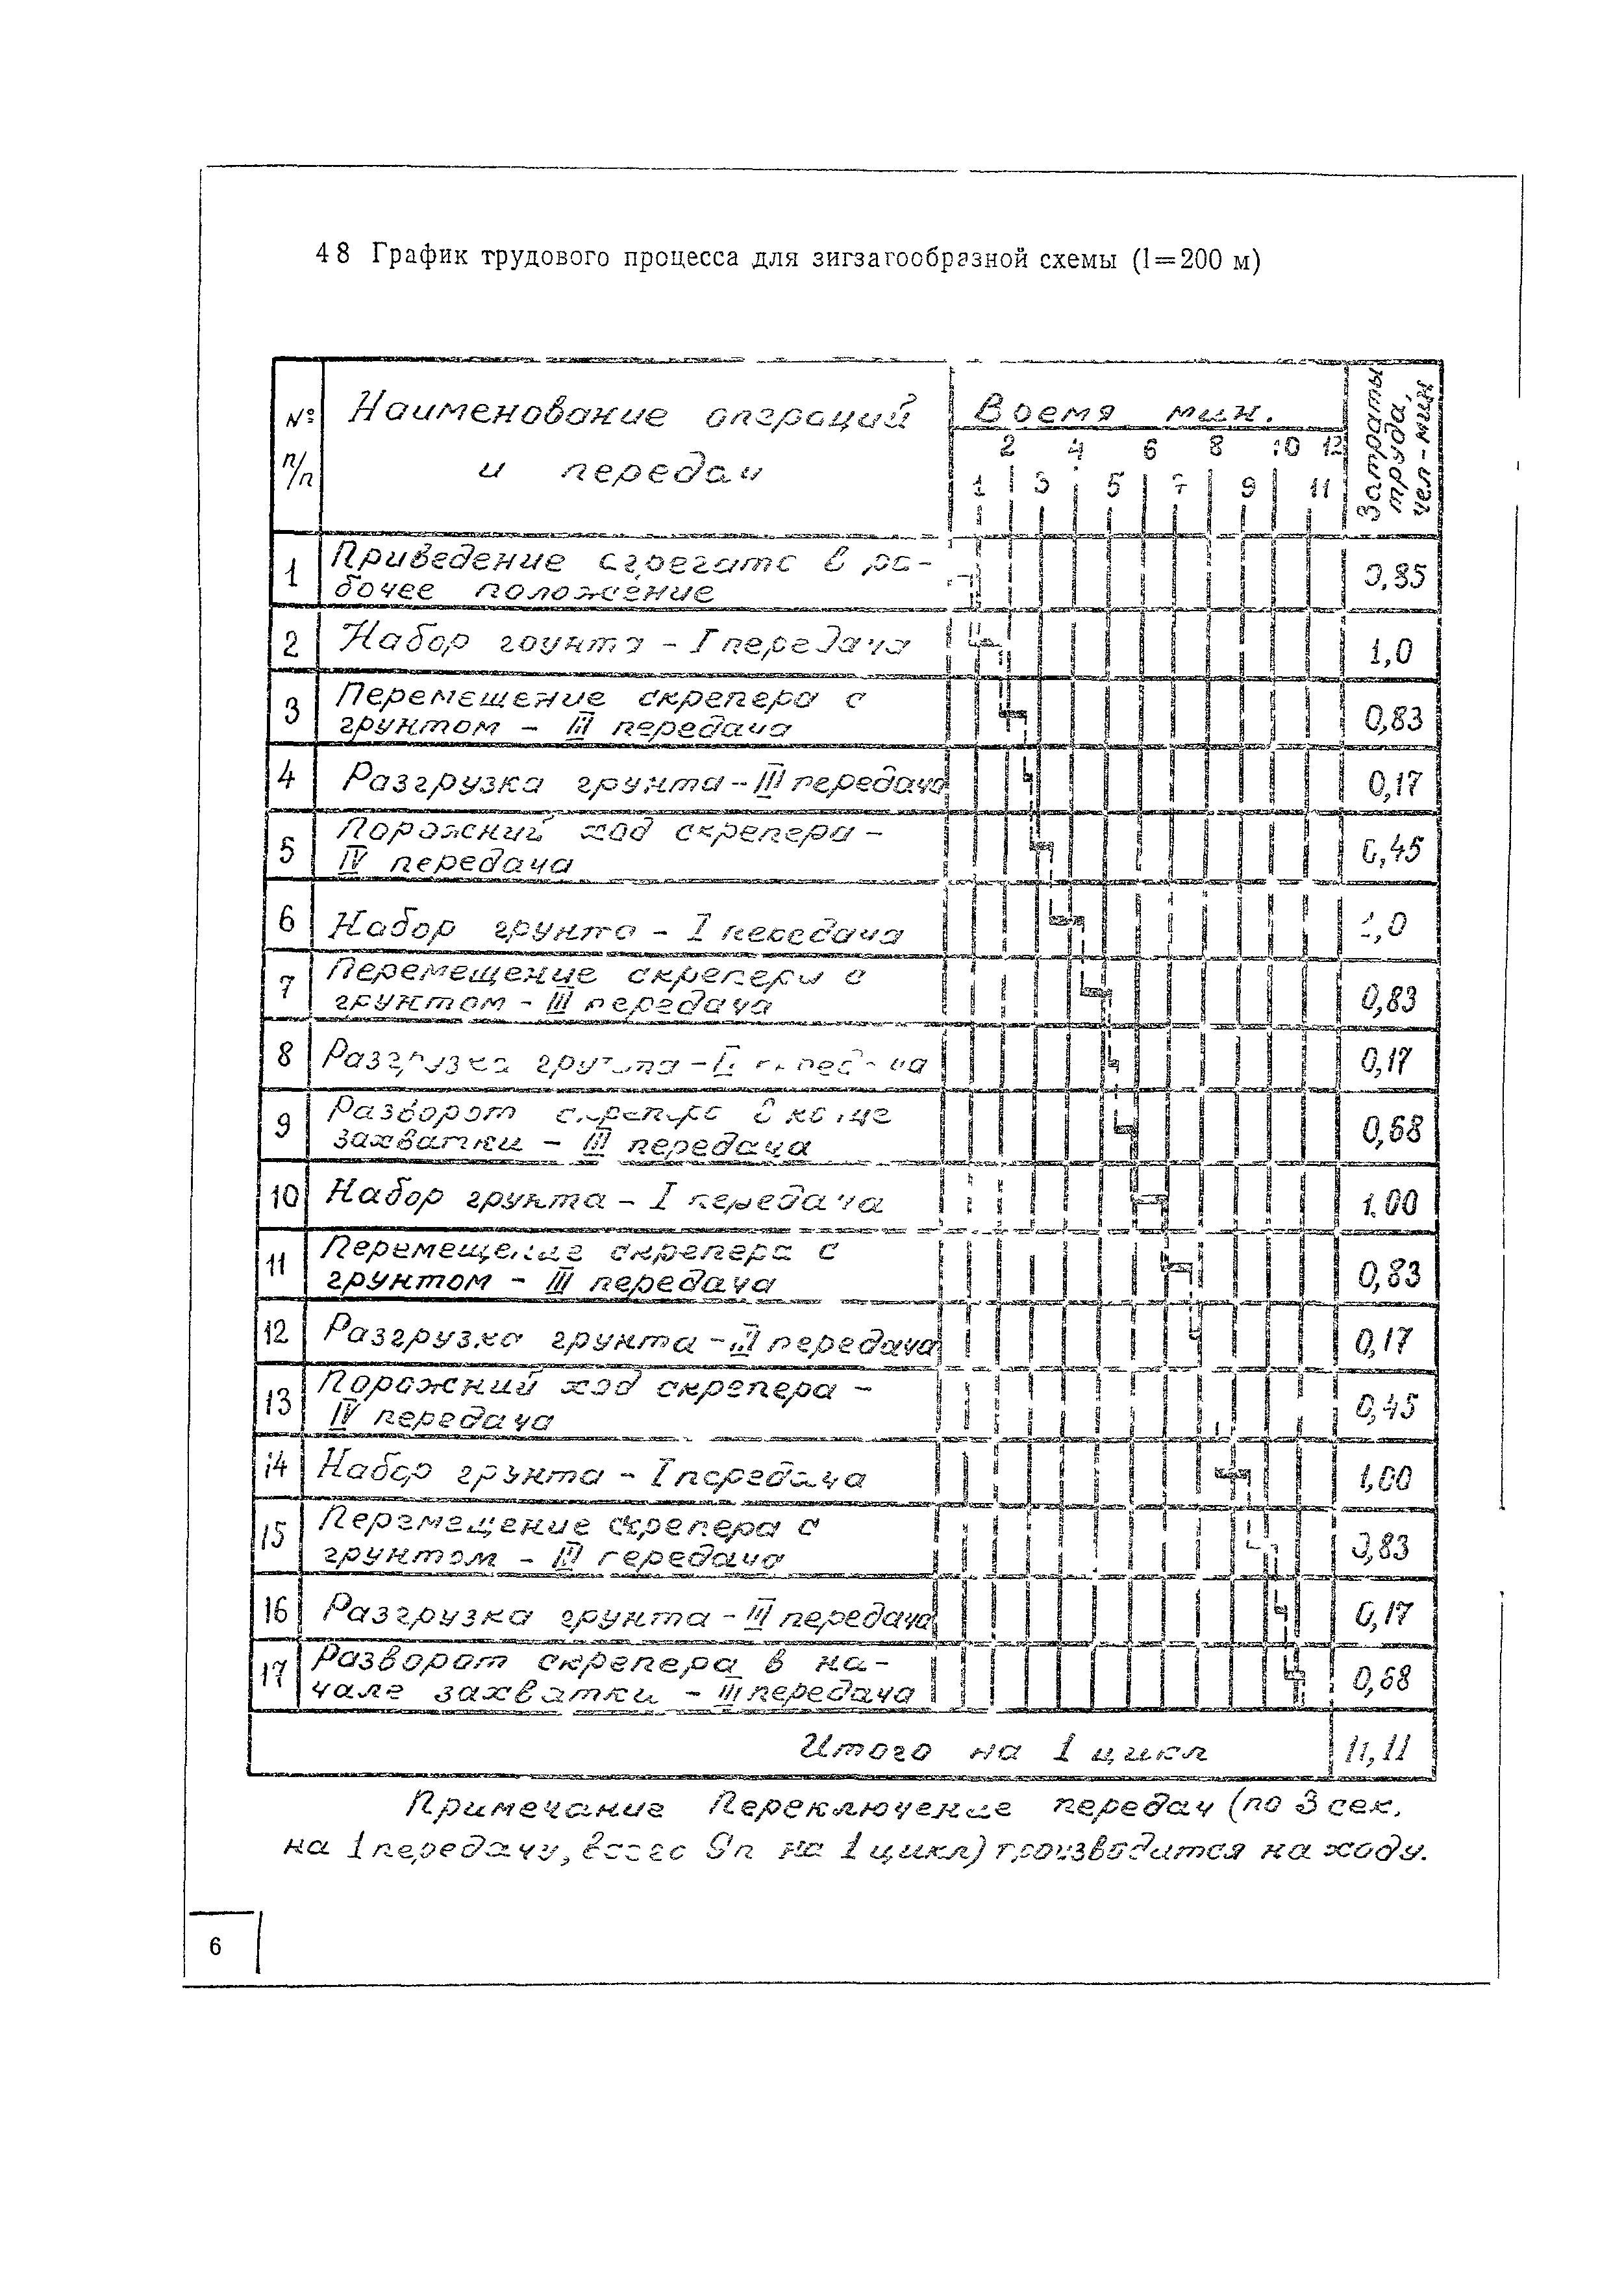 48 График трудового процесса для зигзагообразной схемы (l=200 м)
№ п/п
Наименование операций
и передач
Время мин.
Затраты
труда,
чел-мин
2 4 6 8 10 12
1 3 5 7 9 11
1 Приведение агрегата в ра-
бочее положение 0,85
2 Набор грунта - I передача 1,0
3 Перемещение скрепера с
грунтом - III передача 0,83
4 Разгрузка грунта - III передача 0,17
5 Порожний ход скрепера -
IV передача 0,45
6 Набор грунта - I передача 1,0
7 Перемещение скрепера с
грунтом - III передача 0,83
8 Разгрузка грунта - передача 0,17
9 Разворот скрепера в конце
захватки - III передача 0,68
10 Набор грунта - I передача 1,00
11 Перемещение скрепера с
грунтом - III передача 0,83
12 Разгрузка грунта - III передача 0,17
13 Порожний ход скрепера -
IV передача 0,45
14 Набор грунта - I передача 1,00
15 Перемещение скрепера с
грунтом - III передача 0,83
16 Разгрузка грунта - III передача 0,17
17 Разворот скрепера в на-
чале захватки - III передача 0,68
Итого на 1 цикл 11,11
Примечание Переключение передач (по 3 сек.
на 1 передачу, всего на 1 цикл) производится на ходу.
6